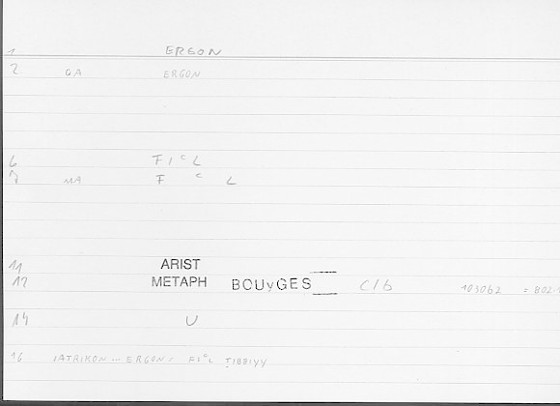 1 ERGON
2 GA ERGON
6 F I ᶜ L
7 MA F ᶜ L
11 ARIST
12 METAPH BOUyGES C16 103062
14 U
16 IATRIKON — ERGON: FIᶜL ṬIBBIYY